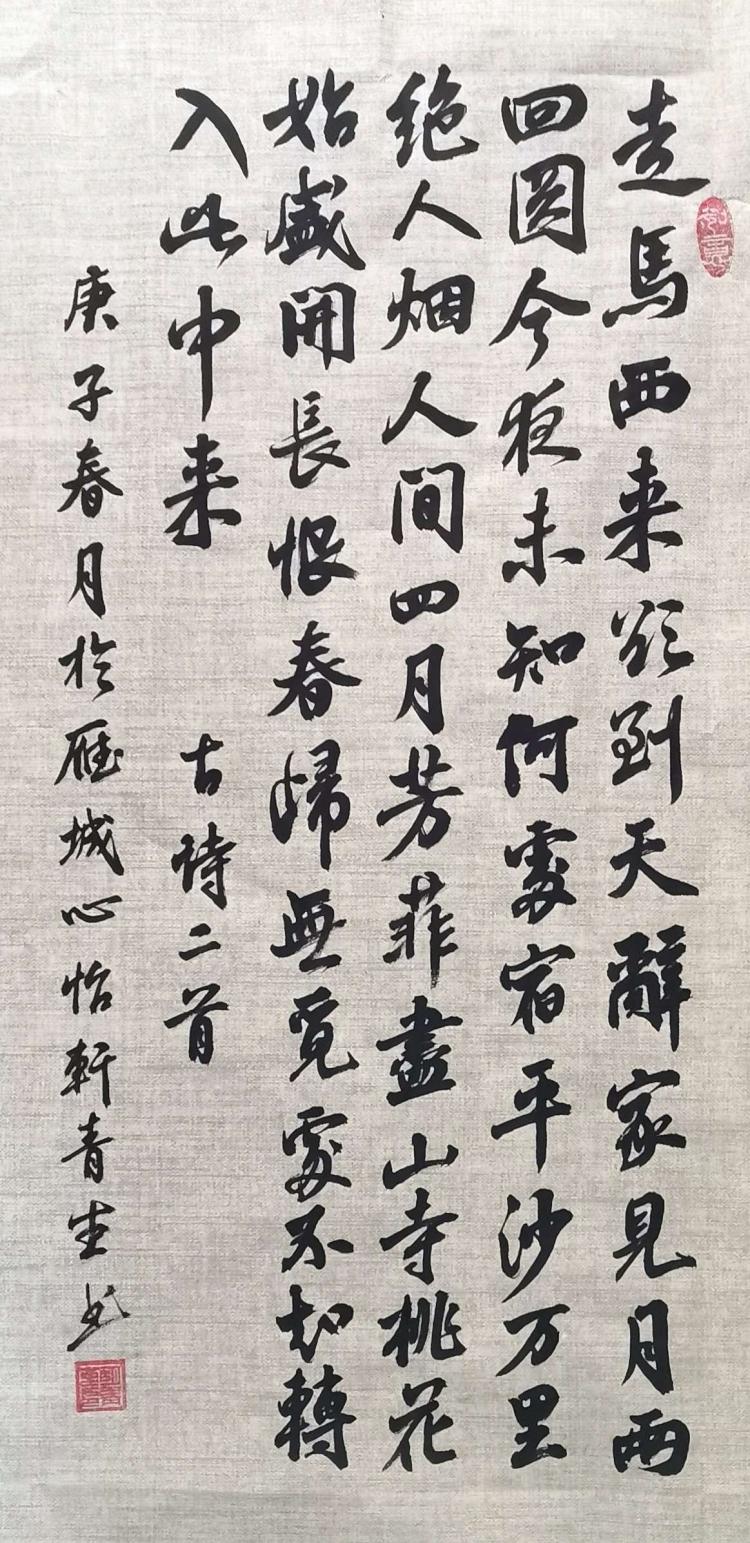 走馬西来欲到天辭家見月兩
回圆今夜未知何處宿平沙万里
绝人烟人间四月芳菲盡山寺桃花
始盛開長恨春歸無覓處不知轉
入此中来 古诗二首
庚子春月於雁城心怡軒青生书
如意